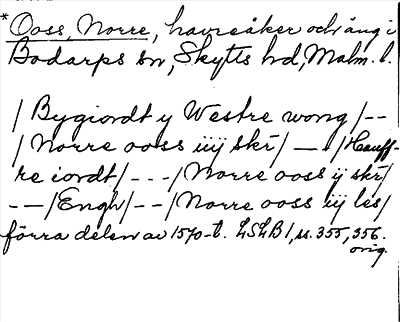 * Ooss, Norre, havreåker och äng i
Bodarps sn, Skytts hd, Malm. l.
/ Bygiordt y Westre wong / --
/ Norre ooss iiij skr / -- / Hauff-
re iordt / --- / Norre ooss ij skr /
-- / Engh / -- / Norre ooss iij les /
förra delen av 1570-t. LSLB 1, ss. 355, 356.
orig.